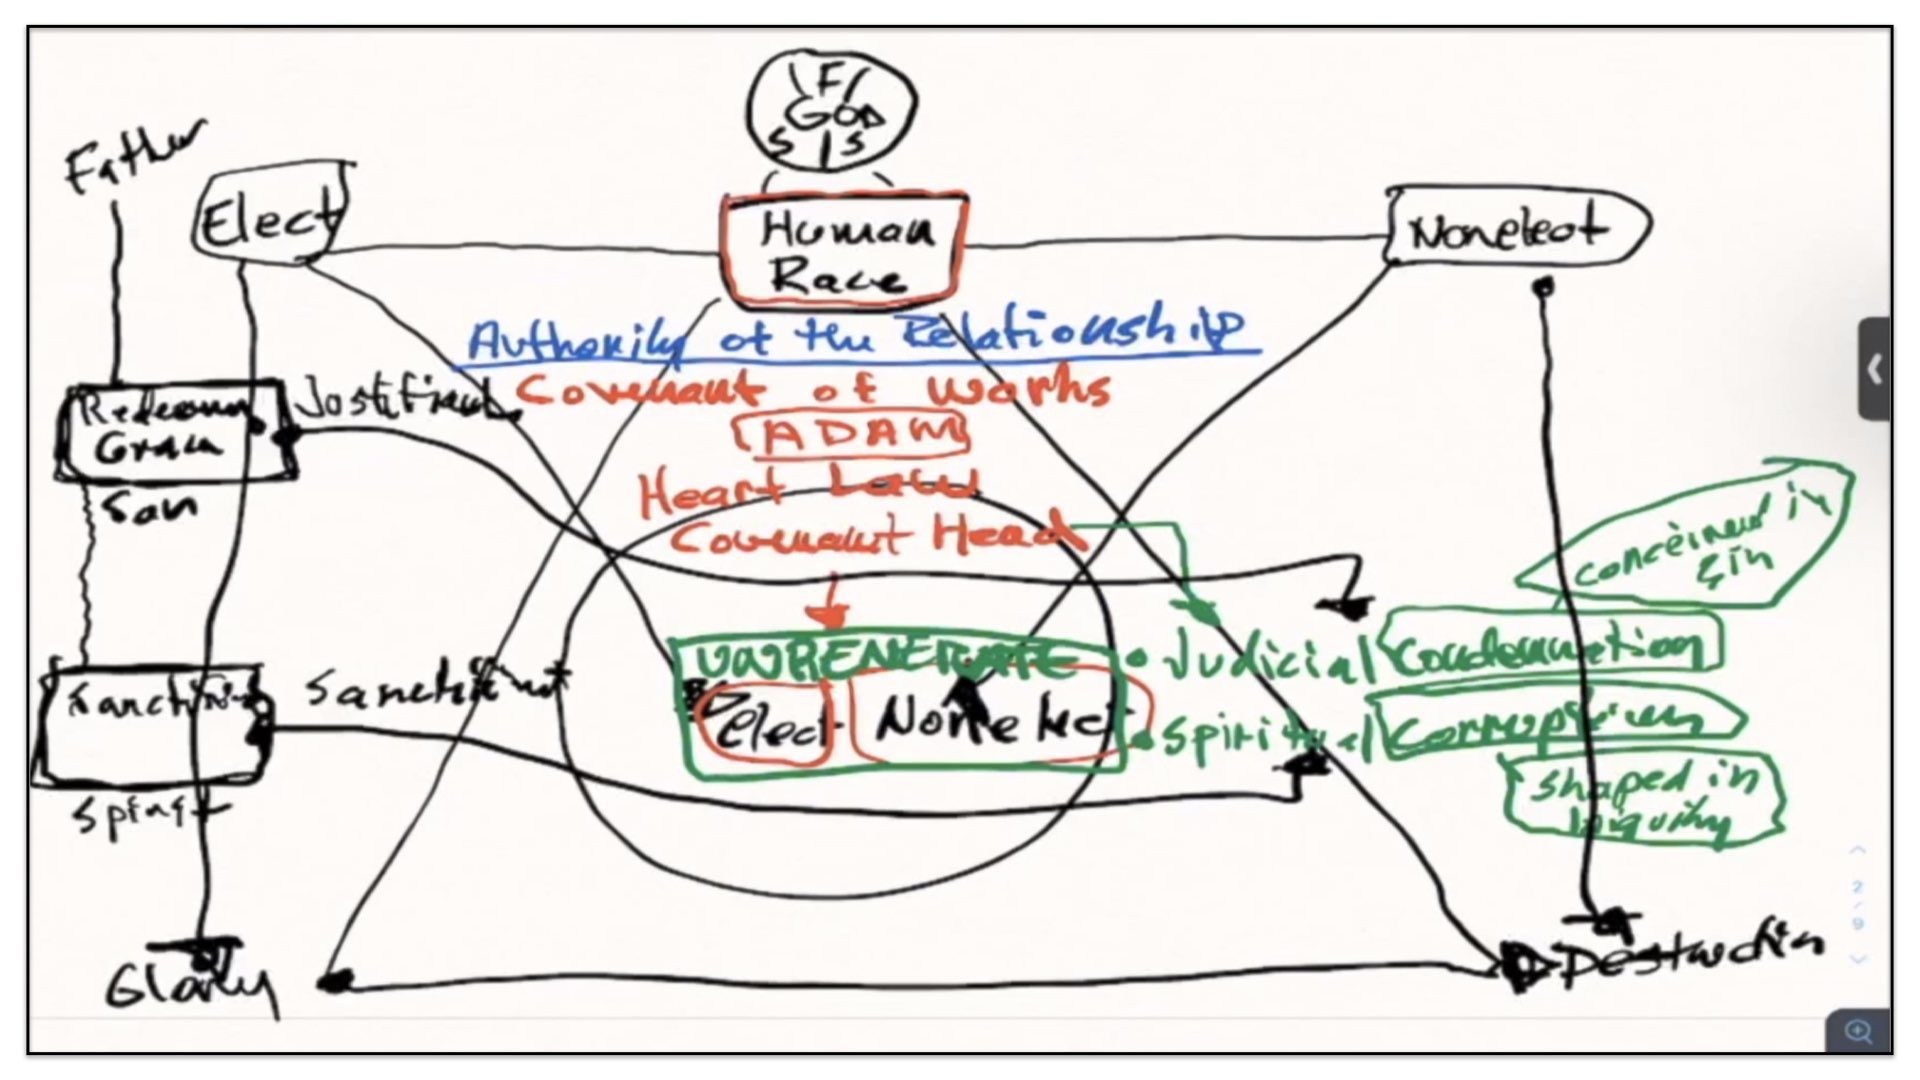 F
GOD
S S
Father
Elect
Human
Race
Nonelect
Authority of the Relationship
Covenant of works
ADAM
Heart Law
Covenant Head
Justificat
Son
conceived in
sin
UNREGENERATE
Elect
Non elect
• Judicial Condemnation
• Spiritual Corruption
shaped in
iniquity
Spirit
Glory
Destruction
2/9